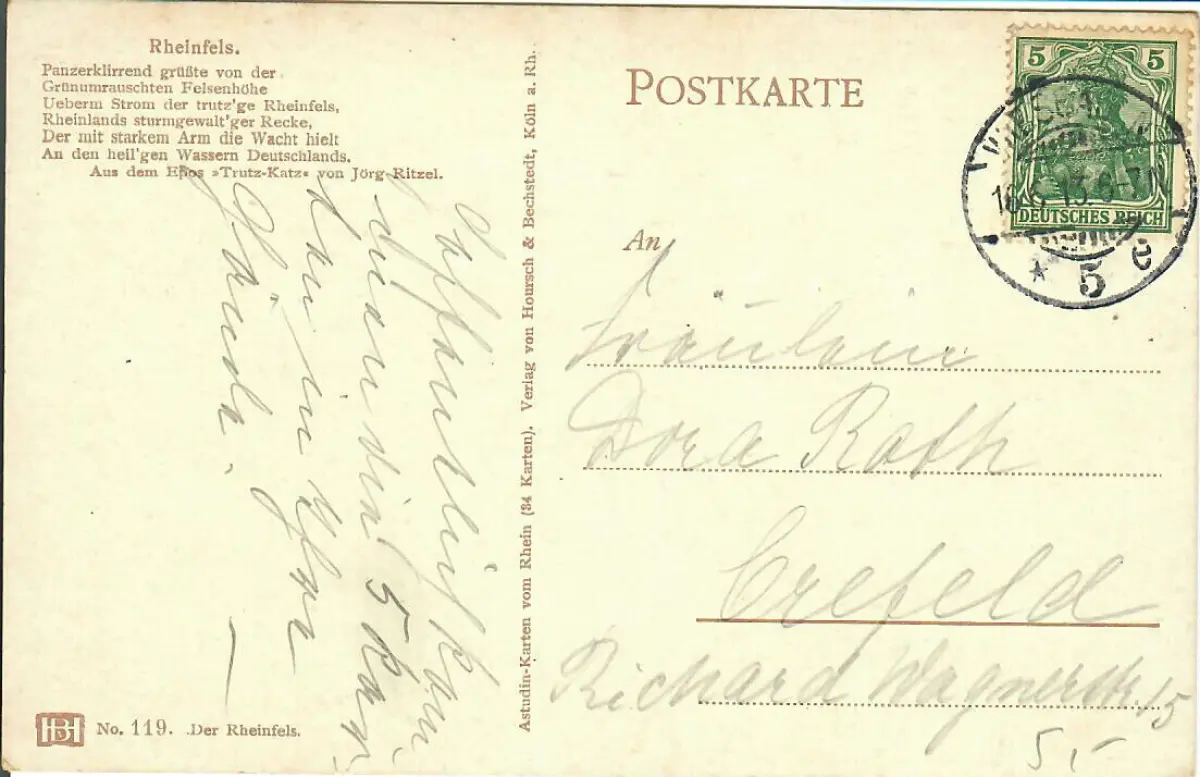 Rheinfels.
Panzerklirrend grüßte von der
Grünumrauschten Felsenhöhe
Ueberm Strom der trutz'ge Rheinfels,
Rheinlands sturmgewalt'ger Recke,
Der mit starkem Arm die Wacht hielt
An den heil'gen Wassern Deutschlands.
Aus dem Epos »Trutz-Katz« von Jörg-Ritzel.
Hoffentlich kom̄
die 5 Kar
in Ihre
Hände.
No. 119. Der Rheinfels.
Astudin-Karten vom Rhein (34 Karten). Verlag von Hoursch & Bechstedt, Köln a. Rh.
POSTKARTE
5 5
DEUTSCHES REICH
* 5 e
An
Fräulein
Dora Roth
Crefeld
Richard Wagnerstr. 15
5,-